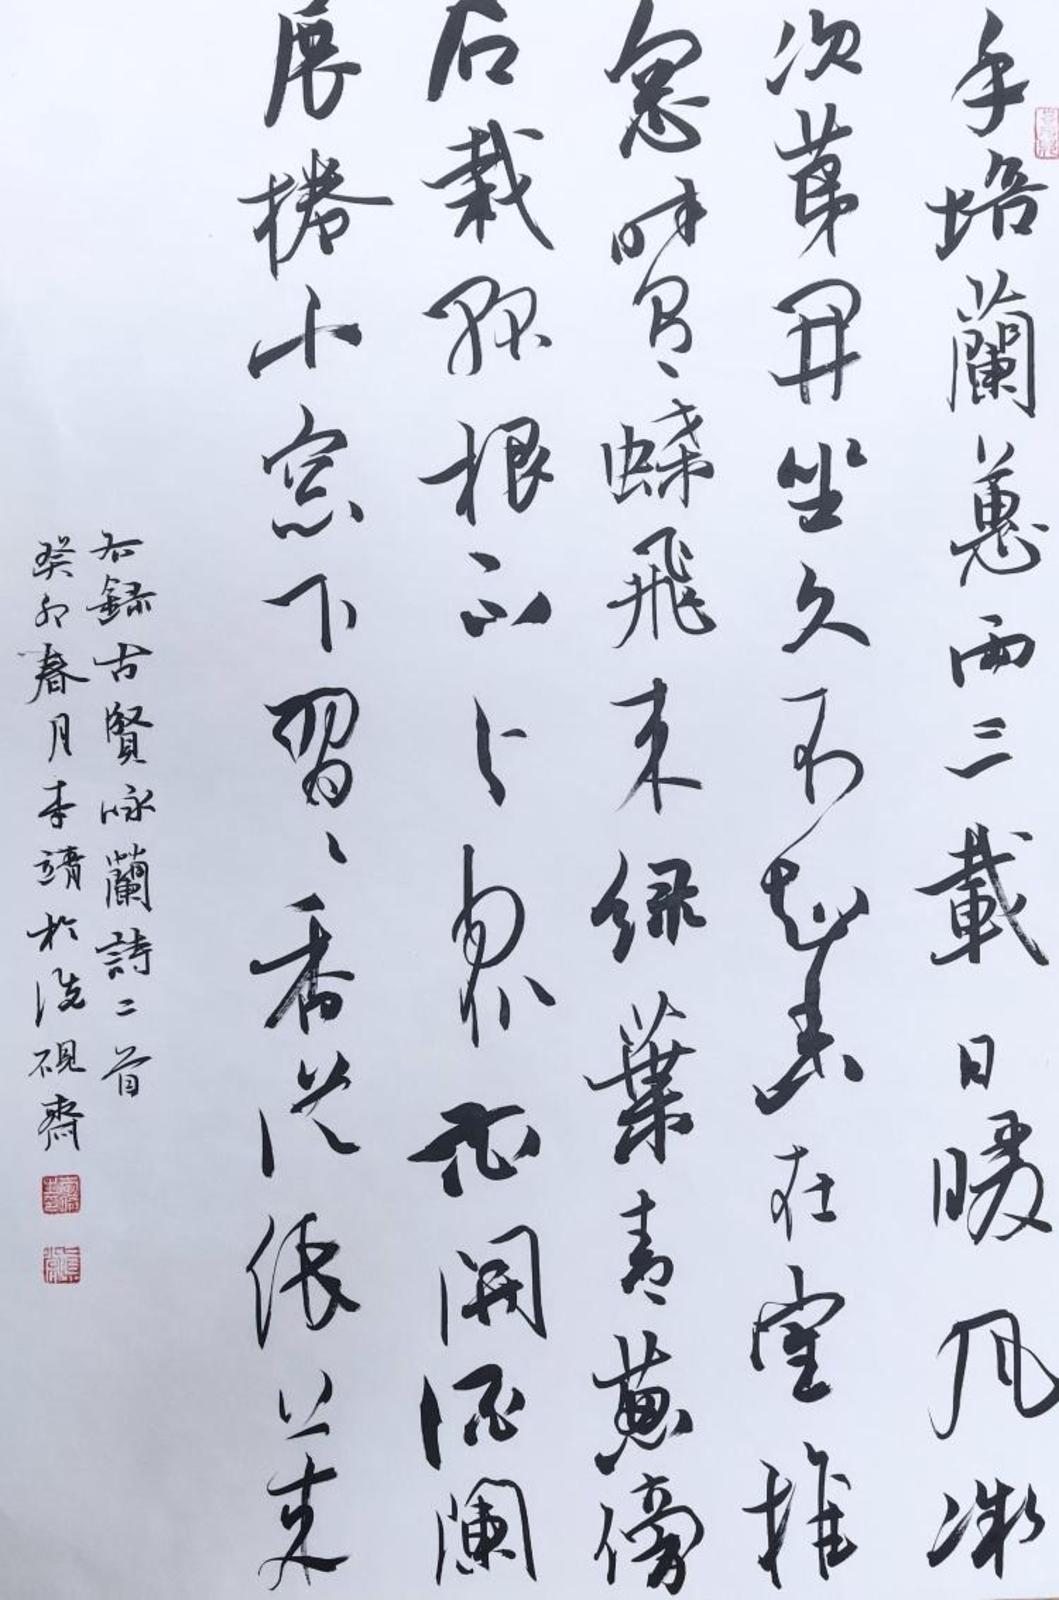 手培蘭蕙兩三載日暖風微
次第開坐久不知香在室推
窗時有蝶飛來綠葉青蔥傍
石栽孤根不與眾花開酒闌
展捲小窗下習習香從紙上來
右錄古賢詠蘭詩二首
癸卯春月李靖於洗硯齋